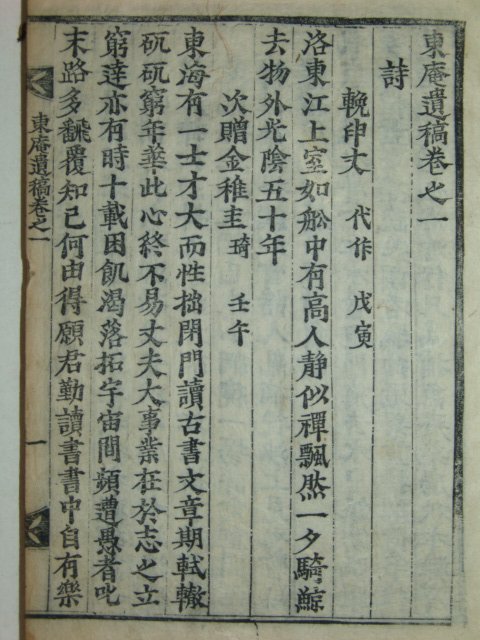 東庵遺稿卷之一
詩
輓印文 代作 戊寅
洛東江上室如舩中有高人静似禪飄然一夕騎鯨
去物外光陰五十年
次贈金稚圭琦 壬午
東海有一士才大而性拙閉門讀古書文章期軾轍
矻矻窮年華此心終不易丈夫大事業在於志之立
窮達亦有時十載困飢渴落拓宇宙間頻遭愚者叱
末路多飜覆知己何由得願君勤讀書書中自有樂
東庵遺稿卷之一
一